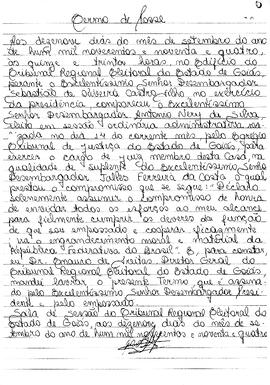 Termo de Posse
Aos dezenove dias do mês de setembro do ano
de hum mil novecentos e noventa e quatro,
às quinze e trinta horas, no Edifício do
Tribunal Regional Eleitoral do Estado de Goiás,
perante o Excelentíssimo Senhor Desembargador
Sebastião de Oliveira Castro Filho no exercício
da presidência, compareceu o Excelentíssimo
Senhor Desembargador Antonio Nery da Silva,
eleito em sessão ordinária administrativa
no dia do corrente mês, pelo Egrégio
Tribunal de Justiça do Estado de Goiás, para
exercer o cargo de Juiz membro desta Casa, na
qualidade de suplente do Excelentíssimo Senhor
Desembargador Jalles Ferreira da Costa o qual
prestou o compromisso que se segue: "Declaro
solenemente assumir o compromisso de honra
de envidar todos os esforços ao meu alcance
para fielmente cumprir os deveres da função
de que sou empossado e cooperar eficazmente
no engrandecimento moral e material da
República Federativa do Brasil". E, para constar,
eu Dr. de Diretor Geral do
Tribunal Regional Eleitoral do Estado de Goiás,
mandei lavrar o presente Termo que é assina-
do pelo Excelentíssimo Senhor Desembargador Presi-
dente e pelo empossado.
Sala de sessão do Tribunal Regional Eleitoral do
Estado de Goiás, aos dezenove dias do mês de se-
tembro do ano de hum mil novecentos e noventa e quatro